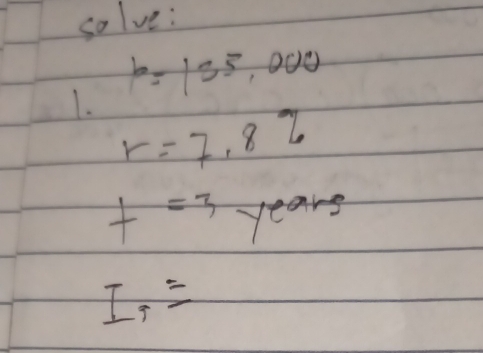 solve:
1. P= 135,000
r=7.8%
t =3 years
I =